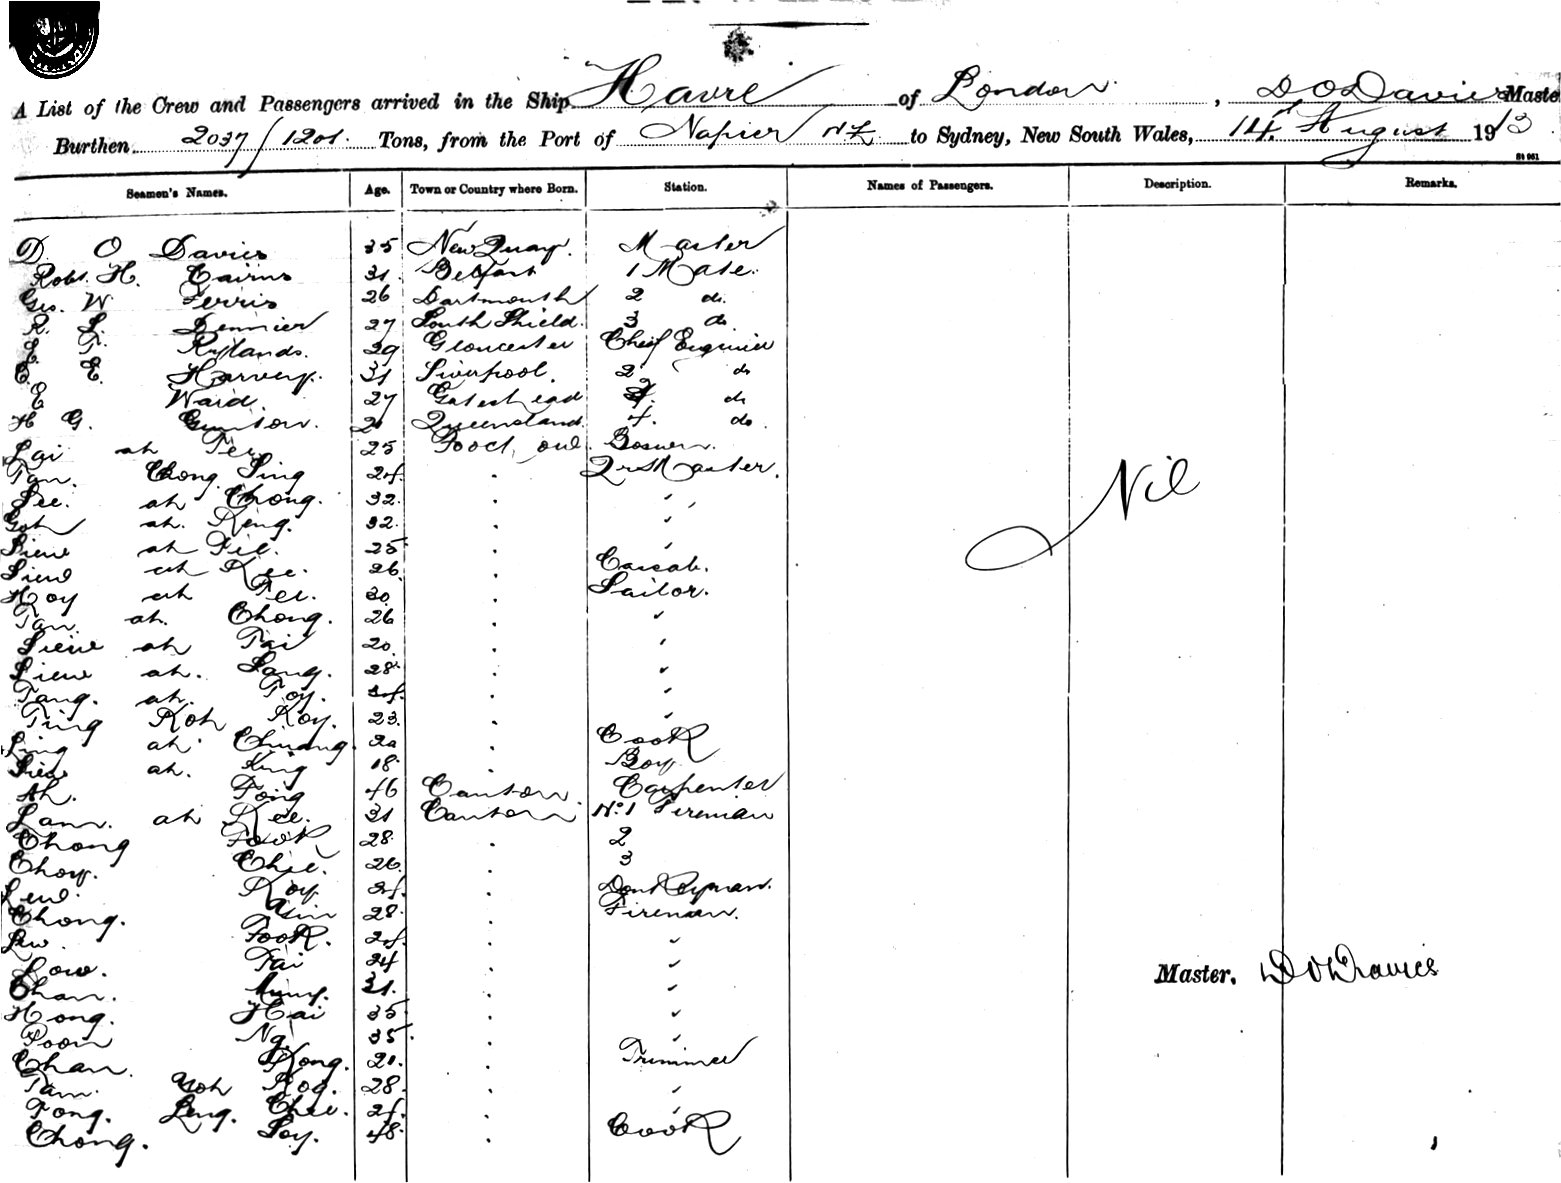 A List of the Crew and Passengers arrived in the Ship Havre of London, D O Davies Master
Burthen 2037/1201 Tons, from the Port of Napier NZ to Sydney, New South Wales, 14th August 1913
Seamen's Names. Age. Town or Country where Born. Station. Names of Passengers. Description. Remarks.
D. O Davies 35 New Quay. Master
Robt. H. Cairns 31. Belfast 1 Mate.
Geo. W. Ferris 26 Dartmouth 2 do.
R. L. Dennier 27 South Shield. 3 do.
E T. Rylands. 29 Gloucester Chief Engineer
E. E. Harvey. 31 Liverpool. 2 do
E Ward 27 Gateshead 3. do
H G. Gunton. 21 Queensland 4. do.
Lai ah Tee 25 Boswn.
Tan. Chong Sing 24. . Qr Master.
See. ah Chong. 32. . "
Goh ah. Keng. 32. . "
Siew ah Fie. 25 . "
Siew ah Kee. 26. . Cassab.
Hoy ah Tee. 30. . Sailor.
Tan. ah. Chong. 26 . "
Siew ah Tai 20. . "
Siew ah. Sang. 28. . "
Tang. ah. Toy. 24. . "
Ting Koh Koy. 23. . "
Ling ah Chuang. 20 . Cook
Siew ah. King 18. . Boy
Ah. Fong 46 Canton. Carpenter
Lam. ah Kee. 31 Canton No. 1 Fireman
Chong Fook 28. . 2
Choy. Chee. 26. . 3
Lew. Koy 24. . Donkeyman.
Chong. Asin 28. . Fireman.
Lew. Fook. 24. . "
Low. Tai 24 . "
Chan. 31. . "
Hong. Hai 35. . "
Poon Ng. 35. . "
Chan. Kong. 21. . Trimmer
Tam. Yoh Koy. 28. . "
Fong. Leng. Chee. 24. . "
Chong. Soy. 48. . Cook
Nil
Master. D O Davies